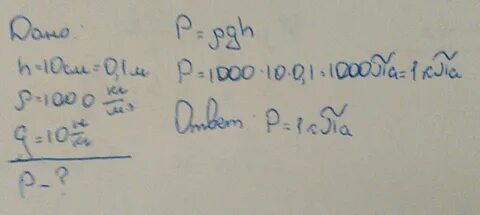 Дано:
h=10см=0,1м
ρ=1000 кг/м³
g=10 н/кг
p-?
P=ρgh
P=1000·10·0,1=1000Па=1кПа
Ответ: P=1кПа